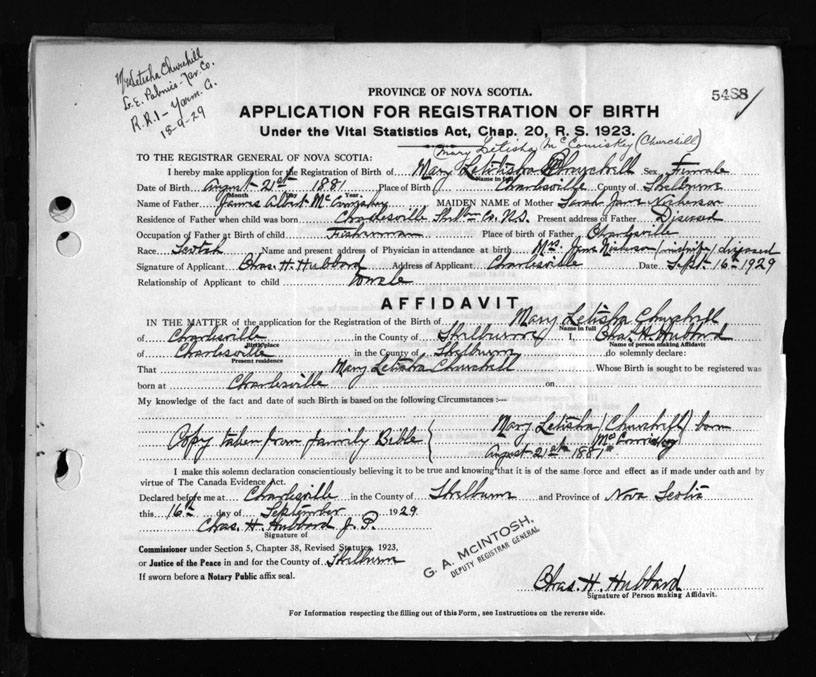 Mrs Letisha Churchill
R.R.1 - Yarm. Co.
18-9-29
5488
PROVINCE OF NOVA SCOTIA.
APPLICATION FOR REGISTRATION OF BIRTH
Under the Vital Statistics Act, Chap. 20, R. S. 1923.
(Mary Letisha McComiskey (Churchill)
TO THE REGISTRAR GENERAL OF NOVA SCOTIA:
I hereby make application for the Registration of Birth of Mary Letitisha Churchill Sex Female
Name in full
Date of Birth August 21st 1881 Place of Birth Charlesville County of Shelburne
Month Day Year.
Name of Father James Albert MAIDEN NAME of Mother Sarah Jane Nickerson
Residence of Father when child was born Charlesville Shelb Co. N.S. Present address of Father Diseased
Occupation of Father at Birth of child Fisherman Place of birth of Father Charlesville
Race Scotch Name and present address of Physician in attendance at birth Mrs. Jane Nickerson (midwife) diseased
Signature of Applicant Chas. H. Hubbard Address of Applicant Charlesville Date Sept. 16th 1929
Relationship of Applicant to child
AFFIDAVIT
IN THE MATTER of the application for the Registration of the Birth of Mary Letisha Churchill
Name in full
of Charlesville in the County of Shelburne I, Chas. H. Hubbard
Birthplace Name of person making Affidavit
of Charlesville in the County of Shelburne do solemnly declare:
Present residence
That Mary Letisha Churchill Whose Birth is sought to be registered was
born at Charlesville on
My knowledge of the fact and date of such Birth is based on the following Circumstances :—
Mary Letisha (Churchill) born
Copy taken from family Bible { McComiskey
August 21st 1881
I make this solemn declaration conscientiously believing it to be true and knowing that it is of the same force and effect as if made under oath and by
virtue of The Canada Evidence Act.
Declared before me at Charlesville in the County of Shelburne and Province of Nova Scotia
this 16th day of September 1929
Chas. H. Hubbard J. P.
Signature of
Commissioner under Section 5, Chapter 38, Revised Statutes, 1923,
or Justice of the Peace in and for the County of Shelburne
If sworn before a Notary Public affix seal.
G. A. MCINTOSH,
DEPUTY REGISTRAR GENERAL
Chas. H. Hubbard
Signature of Person making Affidavit.
For Information respecting the filling out of this Form, see Instructions on the reverse side.